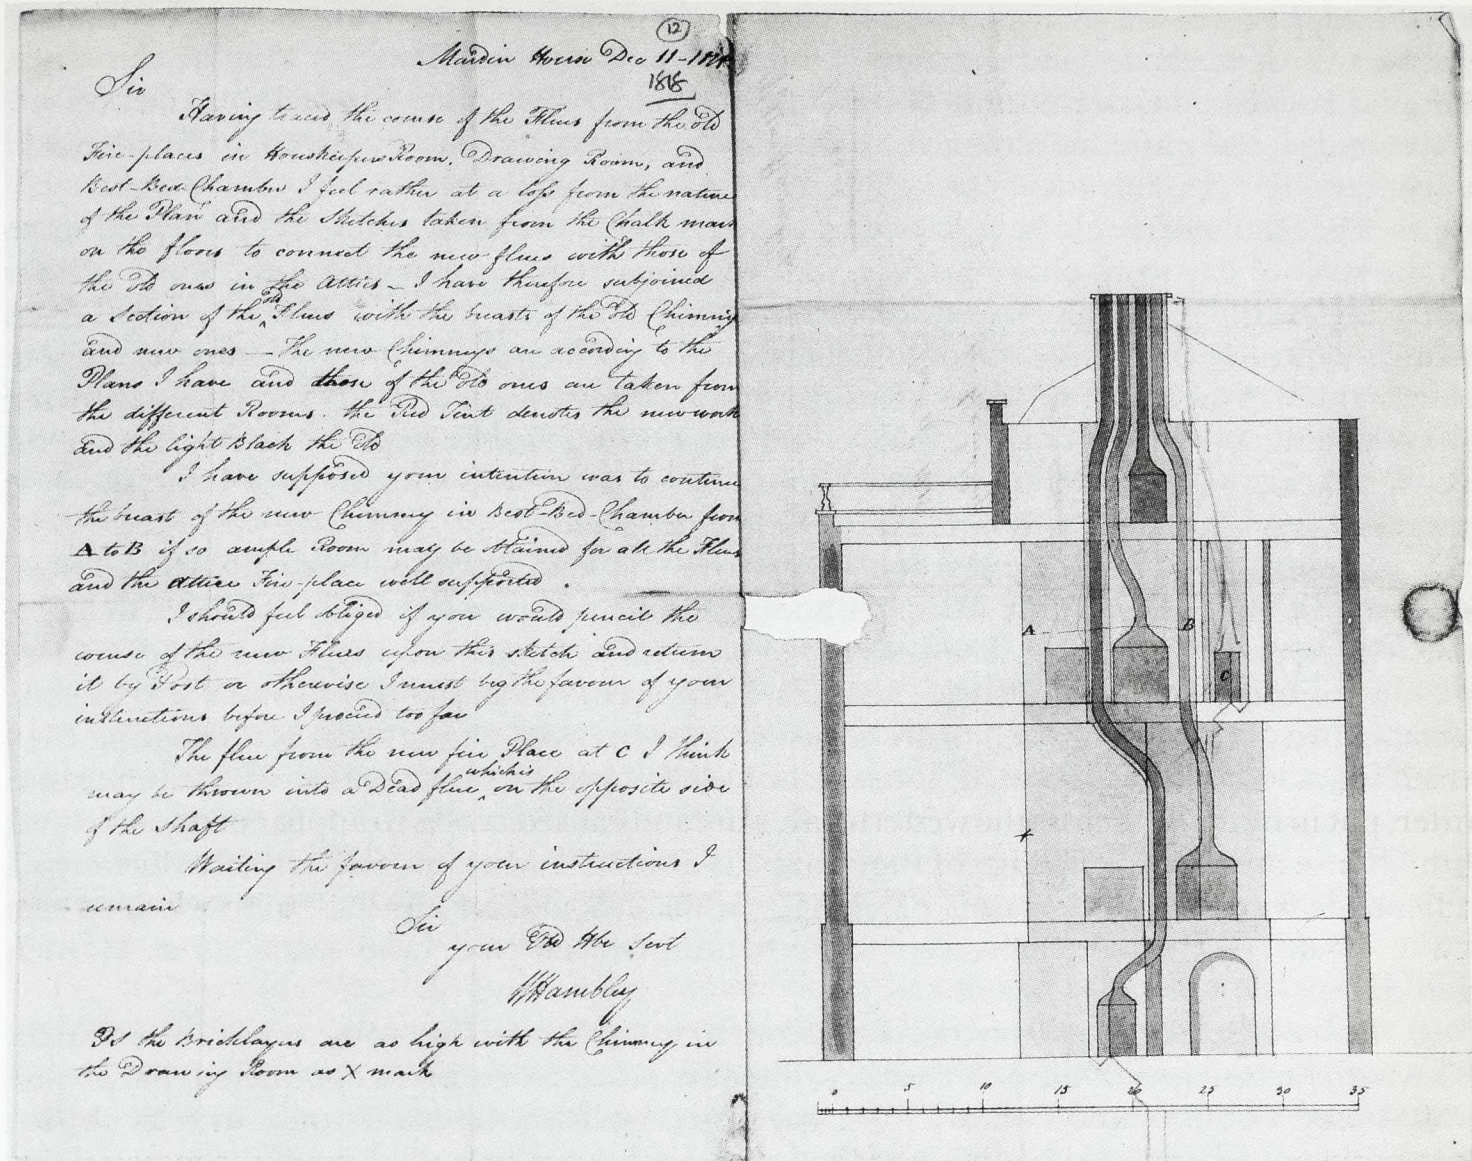 12
Marden House Dec 11 - 1818
1818
Sir
Having traced the course of the Flues from the old
Fire-places in Housekeepers Room, Drawing Room, and
Best-Bed-Chamber I feel rather at a loss from the nature
of the Plan and the sketches taken from the Chalk mark
on the floors to connect the new flues with those of
the old ones in the Attics - I have therefore subjoined
a Section of the old Flues with the breasts of the old Chimneys
and new ones — The new Chimneys are according to the
Plans I have and those of the old ones are taken from
the different Rooms. the Red Tint denotes the new work
and the light Black the Old
I have supposed your intention was to continue
the breast of the new Chimney in Best-Bed-Chamber from
A to B if so ample Room may be obtained for all the Flues
and the attice Fire-place well supported.
I should feel obliged if you would pencil the
course of the new Flues upon this sketch and return
it by Post or otherwise I must beg the favour of your
instructions before I proceed too far
The flue from the new fire Place at C I think
may be thrown into a Dead flue which is on the opposite side
of the shaft
Waiting the favour of your instructions I
remain
Sir
your Obd Hbe Servt
Hambley
PS the Bricklayers are as high with the Chimney in
the Drawing Room as X mark
A
B
C
0 5 10 15 20 25 30 35